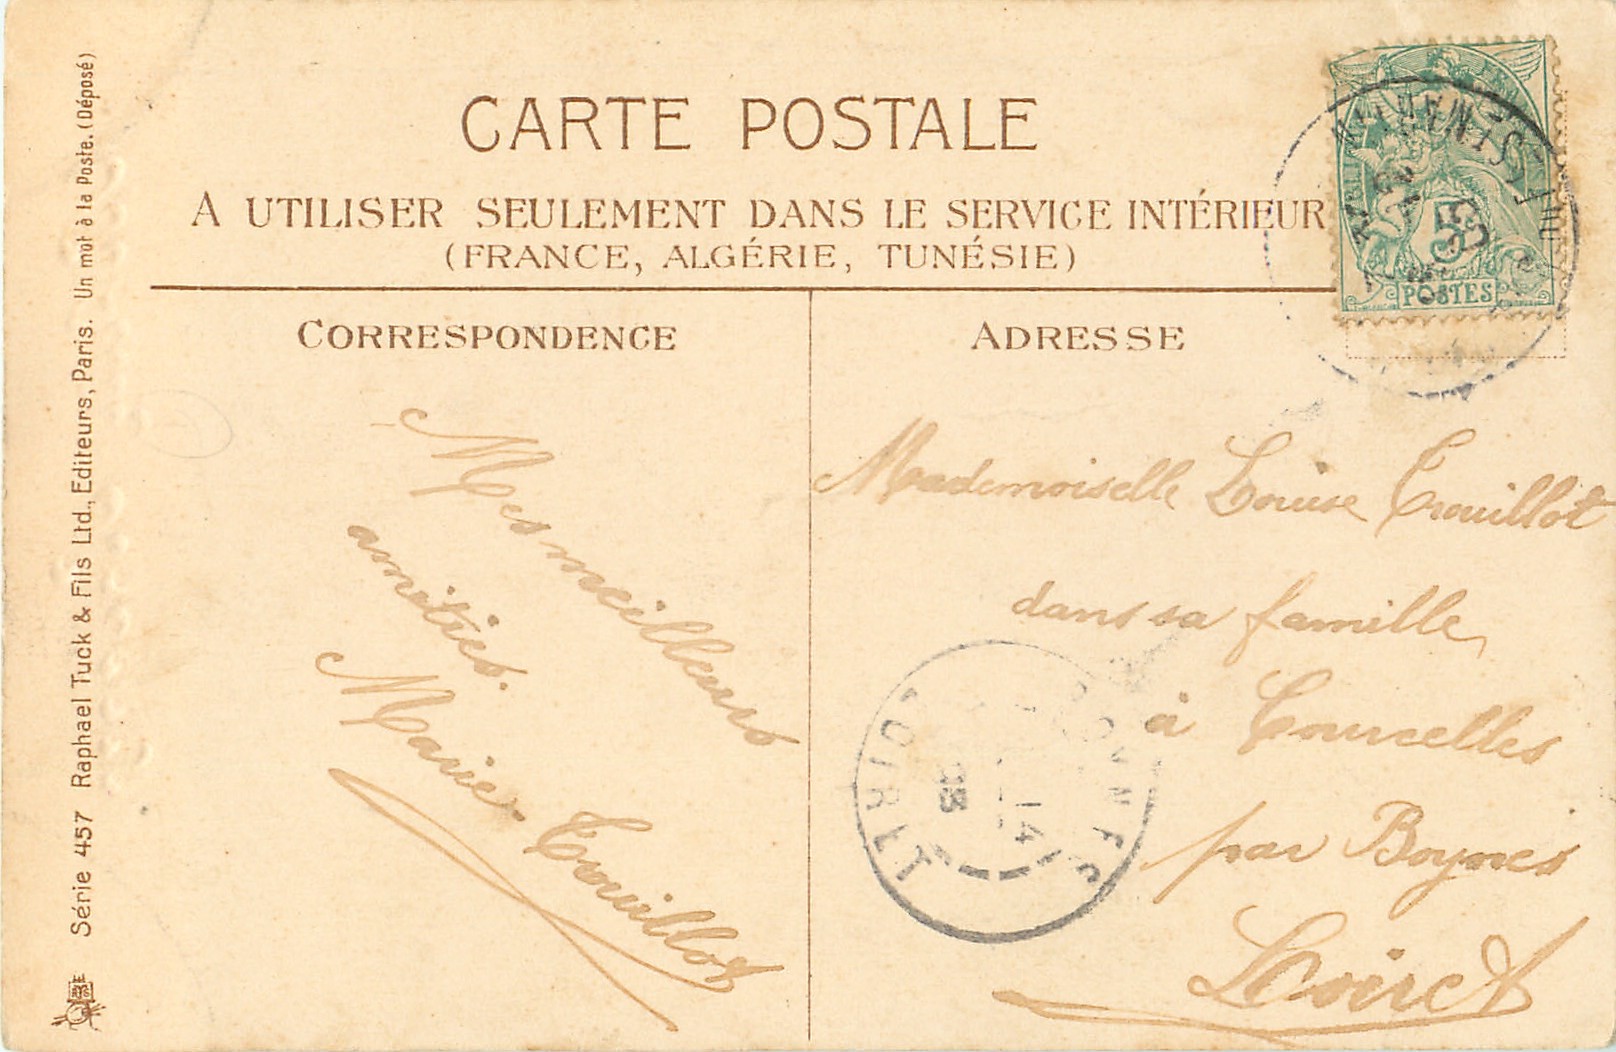 CARTE POSTALE
A UTILISER SEULEMENT DANS LE SERVICE INTÉRIEUR
(FRANCE, ALGÉRIE, TUNÉSIE)
CORRESPONDENCE
Mes meilleurs
amitiés.
Marie Trouillot
ADRESSE
Mademoiselle Louise Trouillot
dans sa famille
à Courcelles
par Boynes
Loiret
5
POSTES
LOIRET
14
Série 457 Raphael Tuck & Fils Ltd., Editeurs, Paris. Un mot à la Poste. (Déposé)